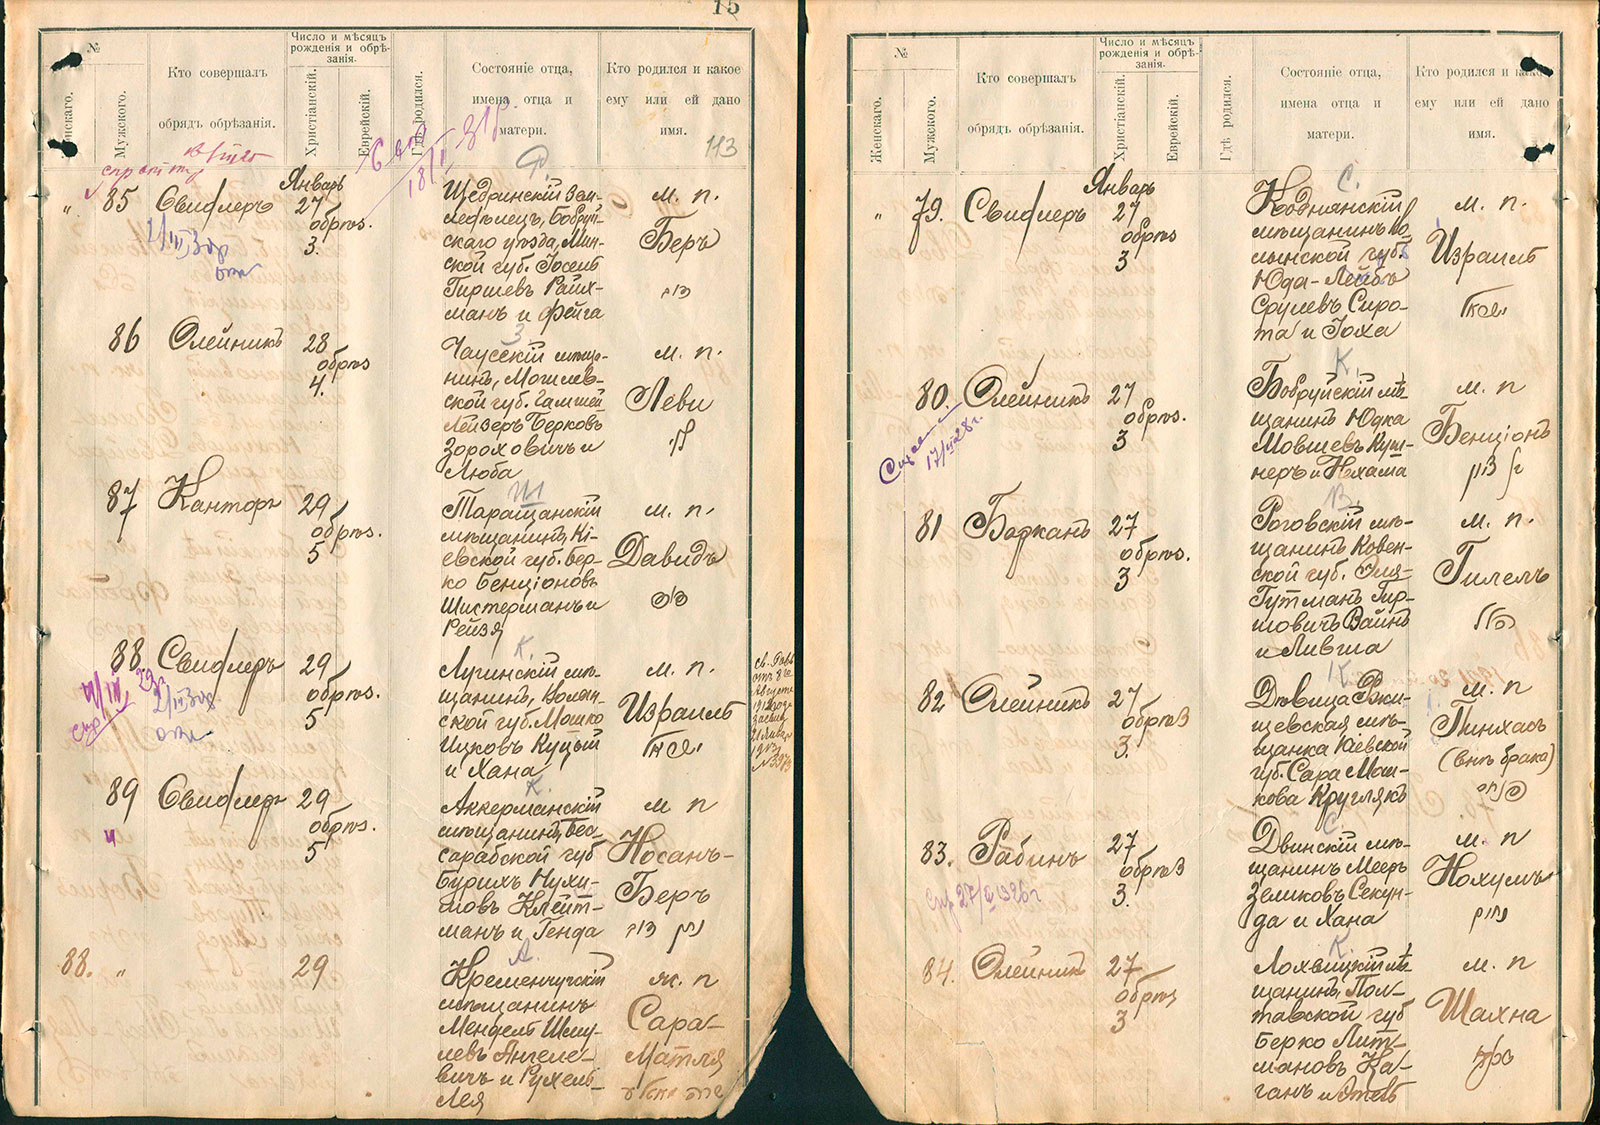 15
№
Женскаго.
Мужского.
Кто совершалъ
обрядъ обрѣзанія.
Число и мѣсяцъ
рожденія и обрѣ-
занія.
Христіанскій.
Еврейскій.
Гдѣ родился.
Состояніе отца,
имена отца и
матери.
Кто родился и какое
ему или ей дано
имя.
113
18/II-31г.
Ф.
85
Свифлеръ
Январь
27
обрѣз.
3.
Щедринскій Зем-
ледѣлецъ, Бобруй-
скаго уѣзда, Мин-
ской губ. Іосель
Гиршевъ Райх-
манъ и Фейга
м. п.
Беръ
З
86
Олейникъ
28
обрѣз
4.
Чаусскій мѣща-
нинъ, Могилев-
ской губ.
Лейзеръ Берковъ
Зороховичъ и
Люба
м. п.
Леви
לוי
Ш
87
Канторъ
29
обрѣз.
5
Таращанскій
мѣщанинъ, Кі-
евской губ. Бер-
ко Бенціоновъ
Шистерманъ и
Рейзя
м. п.
Давидъ
דוד
К.
88
Свифлеръ
29
обрѣз.
5
Лугинскій мѣ-
щанинъ, Волын-
ской губ. Мошко
Ицковъ Куцый
и Хана
м. п.
Израиль
К.
89
Свифлеръ
29
обрѣз.
5
Аккерманскій
мѣщанинъ, Бес-
сарабской губ
Бурихъ Нухи-
мовъ Клейт-
манъ и Генда
м п
Носанъ-
Беръ
А.
88.
"
29
Кременчугскій
мѣщанинъ
Мендель Шму-
левъ Ангеле-
вичъ и Рухель-
Лея
ж. п
Сара-
Матля
№
Женскаго.
Мужского.
Кто совершалъ
обрядъ обрѣзанія.
Число и мѣсяцъ
рожденія и обрѣ-
занія.
Христіанскій.
Еврейскій.
Гдѣ родился.
Состояніе отца,
имена отца и
матери.
Кто родился и какое
ему или ей дано
имя.
С.
"
79.
Свифлеръ
Январь
27
обрѣз
3
Коднянскій
мѣщанинъ Во
лынской губ.
Юда-Лейбъ
Срулевъ Сиро-
та и Іоха
м. п.
Израиль
К
80.
Олейникъ
27
обрѣз.
3
17/II 28г.
Бобруйскій мѣ
щанинъ Юдка
Мовшевъ Куш-
неръ и Нехама
м. п
Бенціонъ
В.
81
Барканъ
27
обрѣз.
3
Роговскій мѣ-
щанинъ Ковен-
ской губ. Эля-
Гутманъ Гир-
шовичъ Вайнъ
и Ливша
м. п.
Гилель
К
82
Олейникъ
27
обрѣз
3.
Дѣвица Ржи-
щевская мѣ-
щанка Кіевской
губ. Сара Мош-
кова Кругляк
м. п
Пинхасъ
(внѣ брака)
פנחס
С.
83.
Рабинъ
27
обрѣз
3.
Двинскій мѣ-
щанинъ Мееръ
Зеликовъ Секун-
да и Хана
м. п
Нохумъ
К.
84.
Олейникъ
27
обрѣз
3
Лохвицкій мѣ
щанинъ, Пол-
тавской губ
Берко Лит-
мановъ Ка-
ганъ и Этель
м. п
Шахна